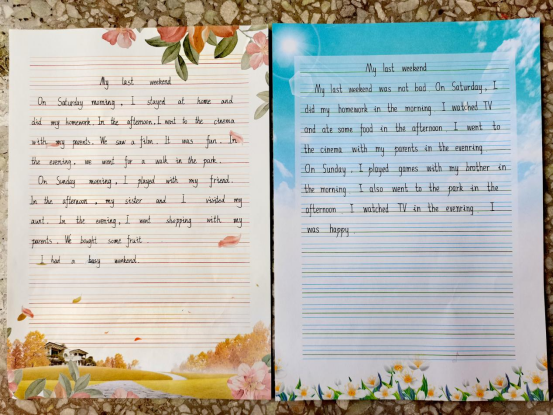 My last weekend
On Saturday morning, I stayed at home and
did my homework. In the afternoon, I went to the cinema
with my parents. We saw a film. It was fun. In
the evening, we went for a walk in the park.
On Sunday morning, I played with my friend.
In the afternoon, my sister and I visited my
aunt. In the evening, I went shopping with my
parents. We bought some fruit.
I had a busy weekend.
My last weekend
My last weekend was not bad. On Saturday, I
did my homework in the morning. I watched TV
and ate some food in the afternoon. I went to
the cinema with my parents in the evenring.
On Sunday, I played games with my brother in
the morning. I also went to the park in the
afternoon. I watched TV in the evenring. I
was happy.